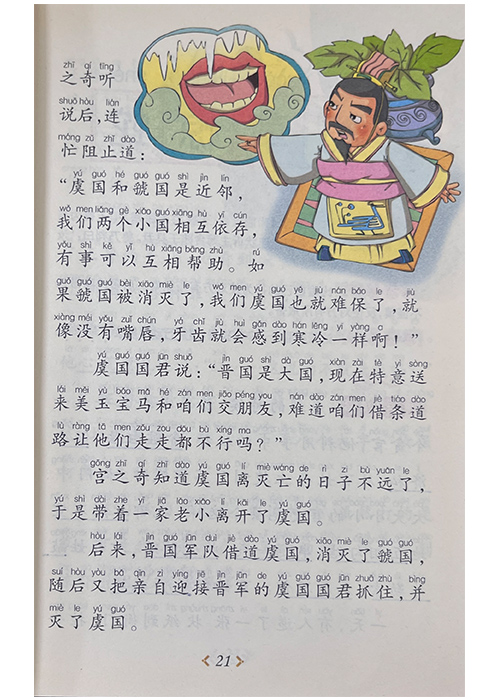 zhī qí tīng
之奇听
shuō hòu lián
说后,连
máng zǔ zhǐ dào
忙阻止道:
yú guó hé guó guó shì jìn lín
“虞国和虢国是近邻,
wǒ men liǎng gè xiǎo guó xiāng hù yī cún
我们两个小国相互依存,
yǒu shì kě yǐ hù xiāng bāng zhù rú
有事可以互相帮助。如
guǒ guó guó bèi xiāo miè le wǒ men yú guó yě jiù nán bǎo le jiù
果虢国被消灭了,我们虞国也就难保了,就
xiàng méi yǒu zuǐ chún yá chǐ jiù huì gǎn dào hán lěng yí yàng a
像没有嘴唇,牙齿就会感到寒冷一样啊!”
yú guó guó jūn shuō jìn guó shì dà guó xiàn zài tè yì sòng
虞国国君说:“晋国是大国,现在特意送
lái měi yù bǎo mǎ hé zán men jiāo péng you nán dào zán men jiè tiáo dào
来美玉宝马和咱们交朋友,难道咱们借条道
lù ràng tā men zǒu zou dōu bù xíng ma
路让他们走走都不行吗?”
gōng zhī qí zhī dào yú guó lí miè wáng de rì zi bù yuǎn le
宫之奇知道虞国离灭亡的日子不远了,
yú shì dài zhe yì jiā lǎo xiǎo lí kāi le yú guó
于是带着一家老小离开了虞国。
hòu lái jìn guó jūn duì jiè dào yú guó xiāo miè le guó guó
后来,晋国军队借道虞国,消灭了虢国,
suí hòu yòu bǎ qīn zì yíng jiē jìn jūn de yú guó guó jūn zhuā zhù bìng
随后又把亲自迎接晋军的虞国国君抓住,并
miè le yú guó
灭了虞国。
21